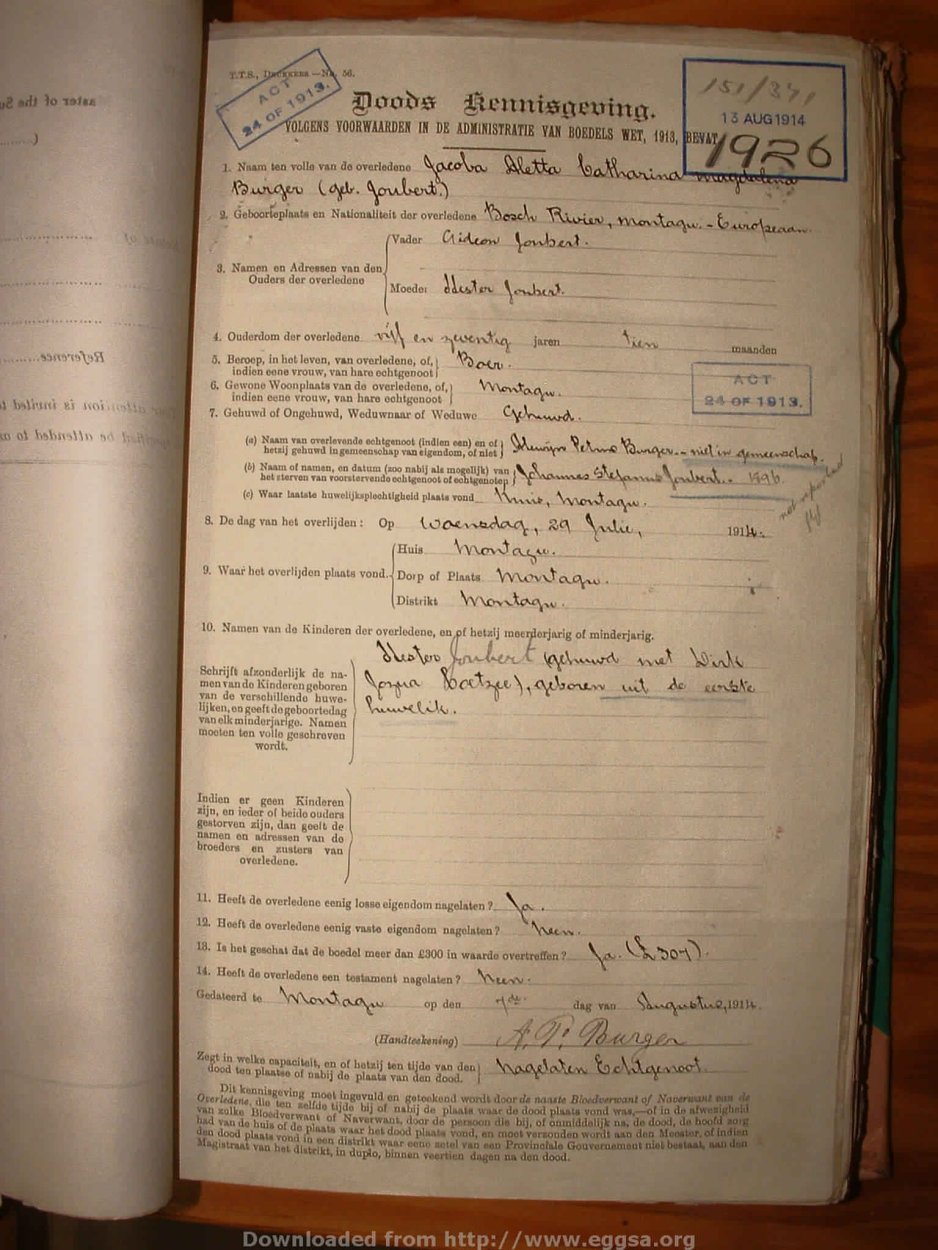 T.T.S., DECKERS.—No. 56.
ACT
24 OF 1913.
151/3
13 AUG 1914
1926
Doods Kennisgeving.
VOLGENS VOORWAARDEN IN DE ADMINISTRATIE VAN BOEDELS WET, 1913, BEVAT.
1. Naam ten volle van de overledene Jacoba Aletta Catharina Magdalena
Burger (geb. Joubert.)
2. Geboorteplaats en Nationaliteit der overledene Bosch Rivier, Montagu. - Europeaan.
3. Namen en Adressen van den Ouders der overledene
Vader Gideon Joubert.
Moeder Hester Joubert.
4. Ouderdom der overledene vijf en zeventig jaren tien maanden
5. Beroep, in het leven, van overledene, of,
indien eene vrouw, van hare echtgenoot Boer.
6. Gewone Woonplaats van de overledene, of,
indien eene vrouw, van hare echtgenoot Montagu.
ACT
24 OF 1913.
7. Gehuwd of Ongehuwd, Weduwnaar of Weduwe Gehuwd.
(a) Naam van overlevende echtgenoot (indien een) en of
hetzij gehuwd in gemeenschap van eigendom, of niet Petrus Burger - niet in gemeenschap.
(b) Naam of namen, en datum (zoo nabij als mogelijk) van
het sterven van voorstervende echtgenoot of echtgenoten Johannes Stefanus Joubert. - 1896.
not reported
(c) Waar laatste huwelijksplechtigheid plaats vond Huis, Montagu.
8. De dag van het overlijden: Op Woensdag, 29 Julie, 1914.
9. Waar het overlijden plaats vond.
Huis Montagu.
Dorp of Plaats Montagu.
Distrikt Montagu.
10. Namen van de Kinderen der overledene, en of hetzij meerderjarig of minderjarig.
Hester Joubert (gehuwd met Dirk
Josua Coetzee), geboren uit de eerste
huwelik.
Schrijft afzonderlijk de na-
men van de Kinderen geboren
van de verschillende huwe-
lijken, en geeft de geboortedag
van elk minderjarige. Namen
moeten ten volle geschreven
wordt.
Indien er geen Kinderen
zijn, en ieder of beide ouders
gestorven zijn, dan geeft de
namen en adressen van de
broeders en zusters van
overledene.
11. Heeft de overledene eenig losse eigendom nagelaten? Ja.
12. Heeft de overledene eenig vaste eigendom nagelaten? Neen.
13. Is het geschat dat de boedel meer dan £300 in waarde overtreffen? Ja. (£307).
14. Heeft de overledene een testament nagelaten? Neen.
Gedateerd te Montagu op den 7de dag van Augustus, 1914.
(Handteekening) A. P. Burger
Zegt in welke capaciteit, en of hetzij ten tijde van den
dood ten plaatse of nabij de plaats van den dood. Nagelaten Echtgenoot.
Dit kennisgeving moet ingevuld en geteekend wordt door de naaste Bloedverwant of Naverwant van de
Overledene, die ten zelfde tijde bij of nabij de plaats waar de dood plaats vond was,—of in de afwezigheid
van zulke Bloedverwant of Naverwant, door de persoon die bij, of onmiddelijk na, de dood, de hoofd zorg
had van de huis of de plaats waar het dood plaats vond, en moet verzonden wordt aan den Meester, of indien
den dood plaats vond in een distrikt waar eene zetel van een Provinciale Gouvernement niet bestaat, aan den
Magistraat van het distrikt, in duplo, binnen veertien dagen na den dood.
Downloaded from http://www.eggsa.org